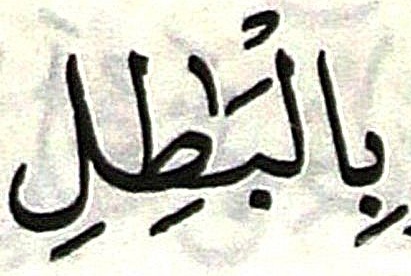 بِالْبَٰطِلِ